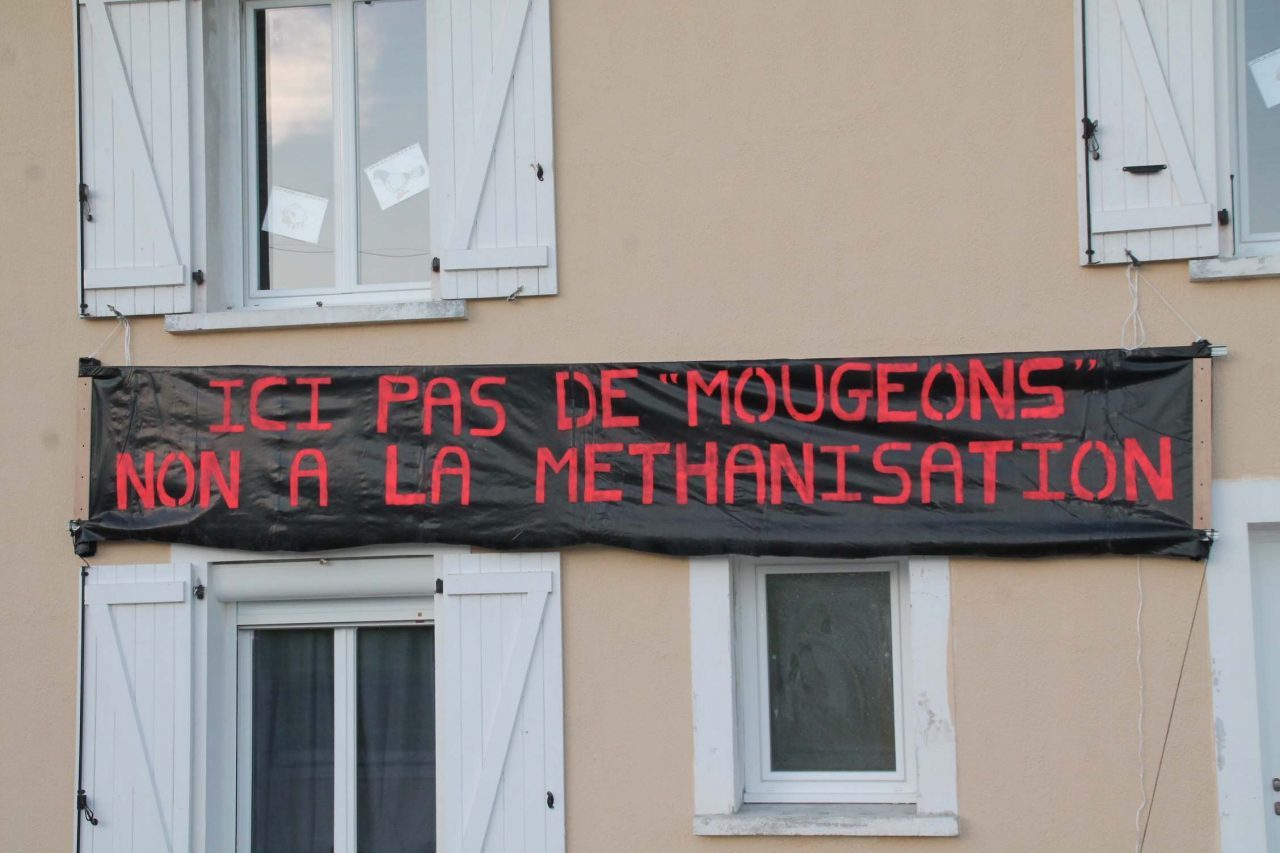 ICI PAS DE "MOUGEONS"
NON A LA METHANISATION